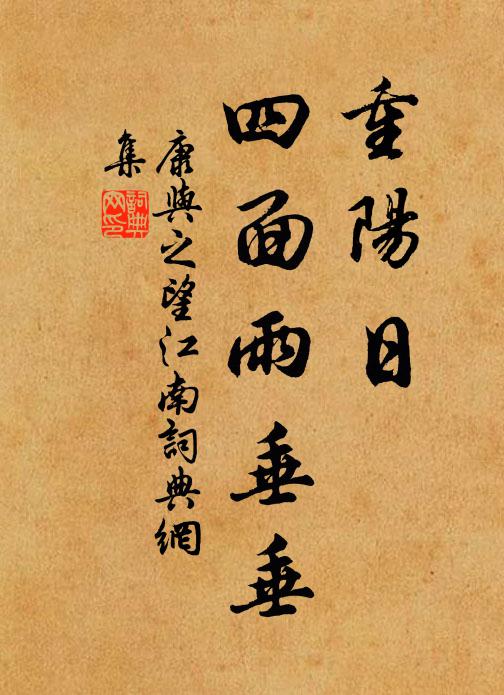 重陽日
四面雨垂垂
康與之望江南詞典網
集
詞典網印